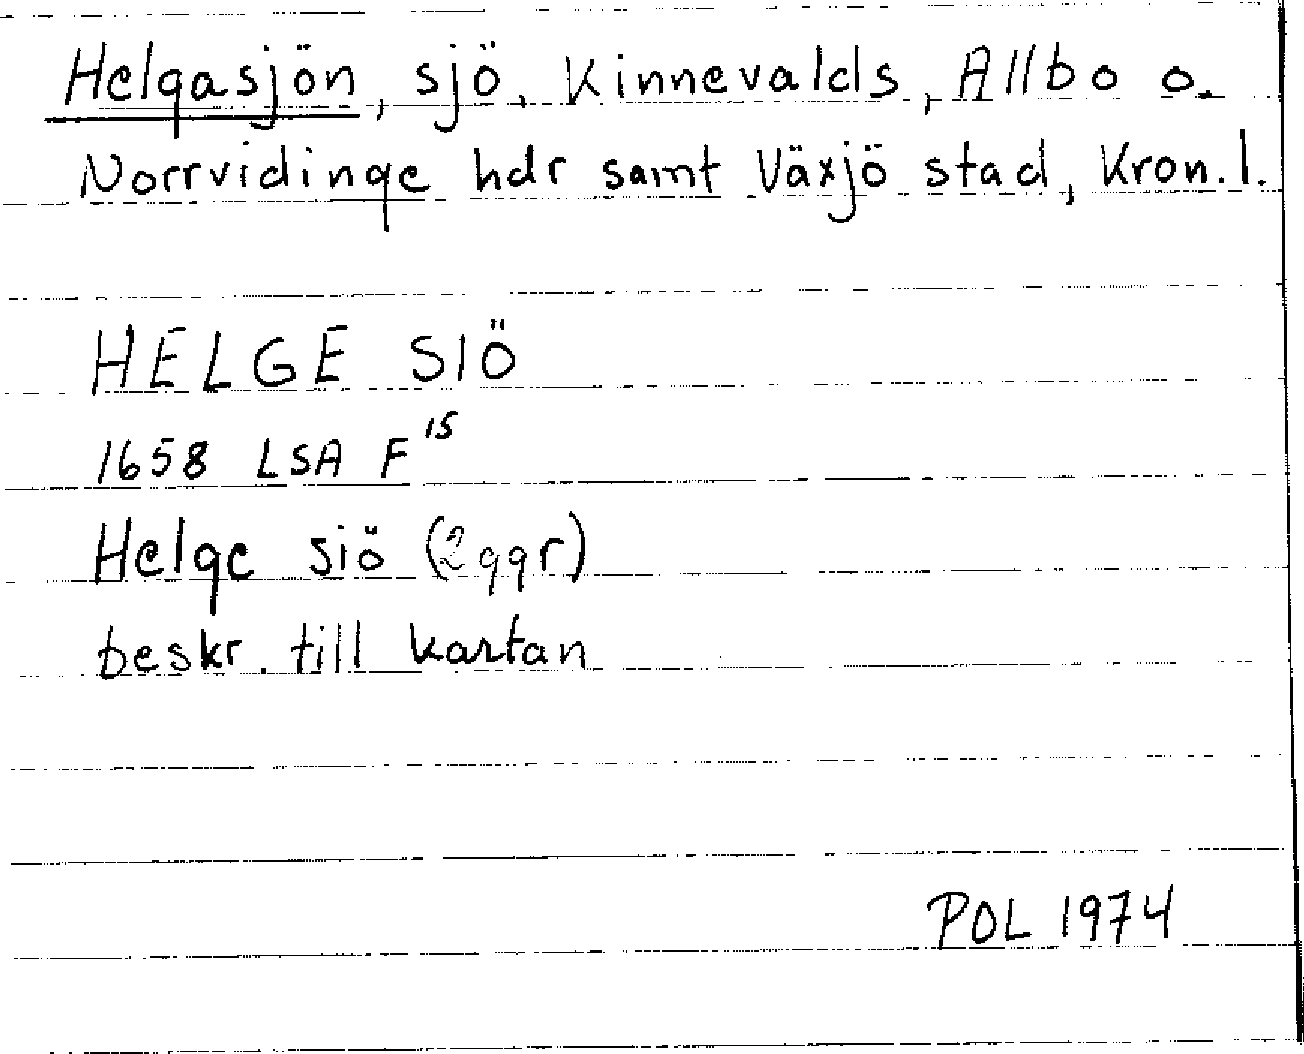 Helgasjön, sjö, Kinnevalds, Allbo o.
Norrvidinge hdr samt Växjö stad, Kron. l.
HELGE SIÖ
1658 LSA F 15
Helge siö (2 ggr)
beskr. till kartan
POL 1974